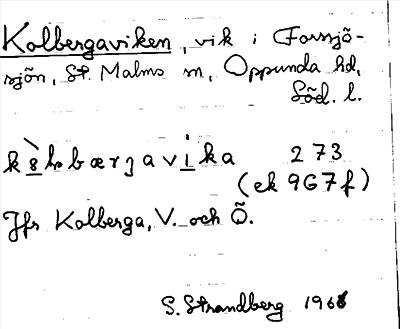 Kolbergaviken, vik i Forssjö-
sjön, St. Malms sn, Oppunda hd,
Söd. l.
273
(ek 9G7f)
Jfr Kolberga, V. och Ö.
S. Strandberg 1968